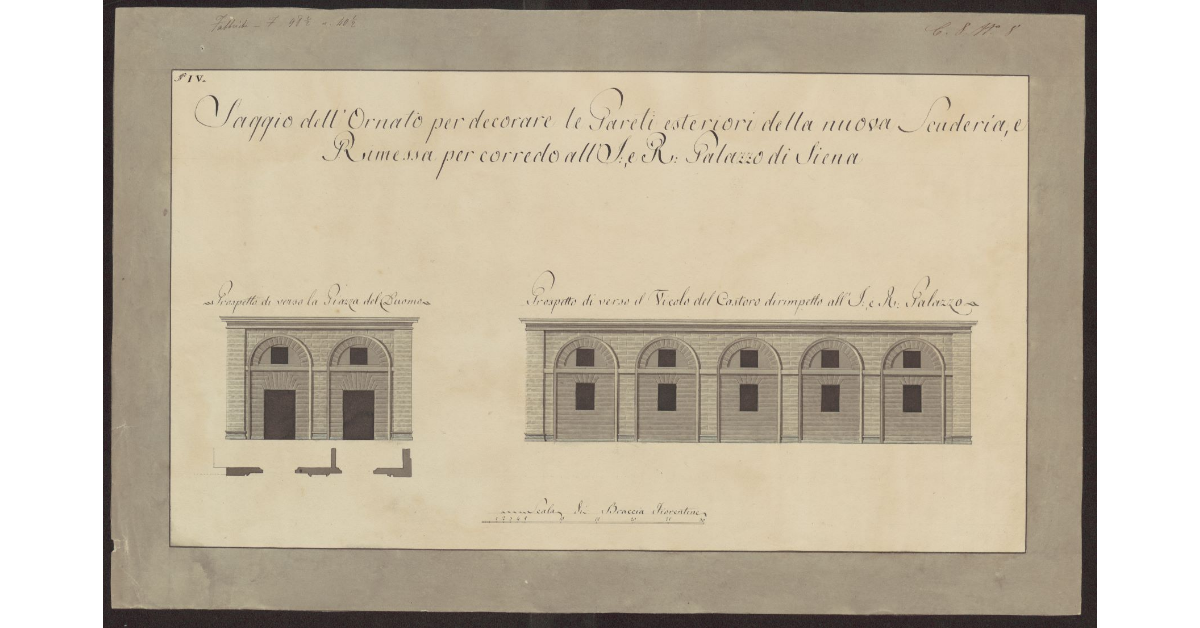 C. 8. N° 8
N° IV.
Saggio dell'Ornato per decorare le Pareti esteriori della nuova Scuderia, e
Rimessa per corredo all'I: e R: Palazzo di Siena
Prospetto di verso la Piazza del Duomo
Prospetto di verso il Vicolo del Castoro dirimpetto all'I: e R: Palazzo
Scala di Braccia Fiorentine